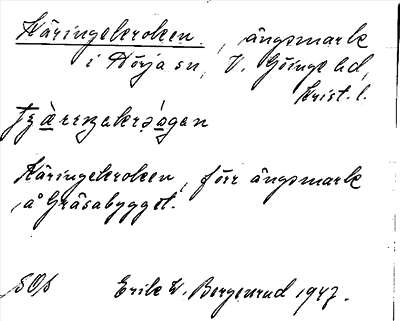 Käringekroken. , ängsmark
i Nörja sn, V. Göinge hd,
Krist. l.
Käringekroken, förr ängsmark
på Gräsabygget.
SOS Erik W. Bergenrud 1947.